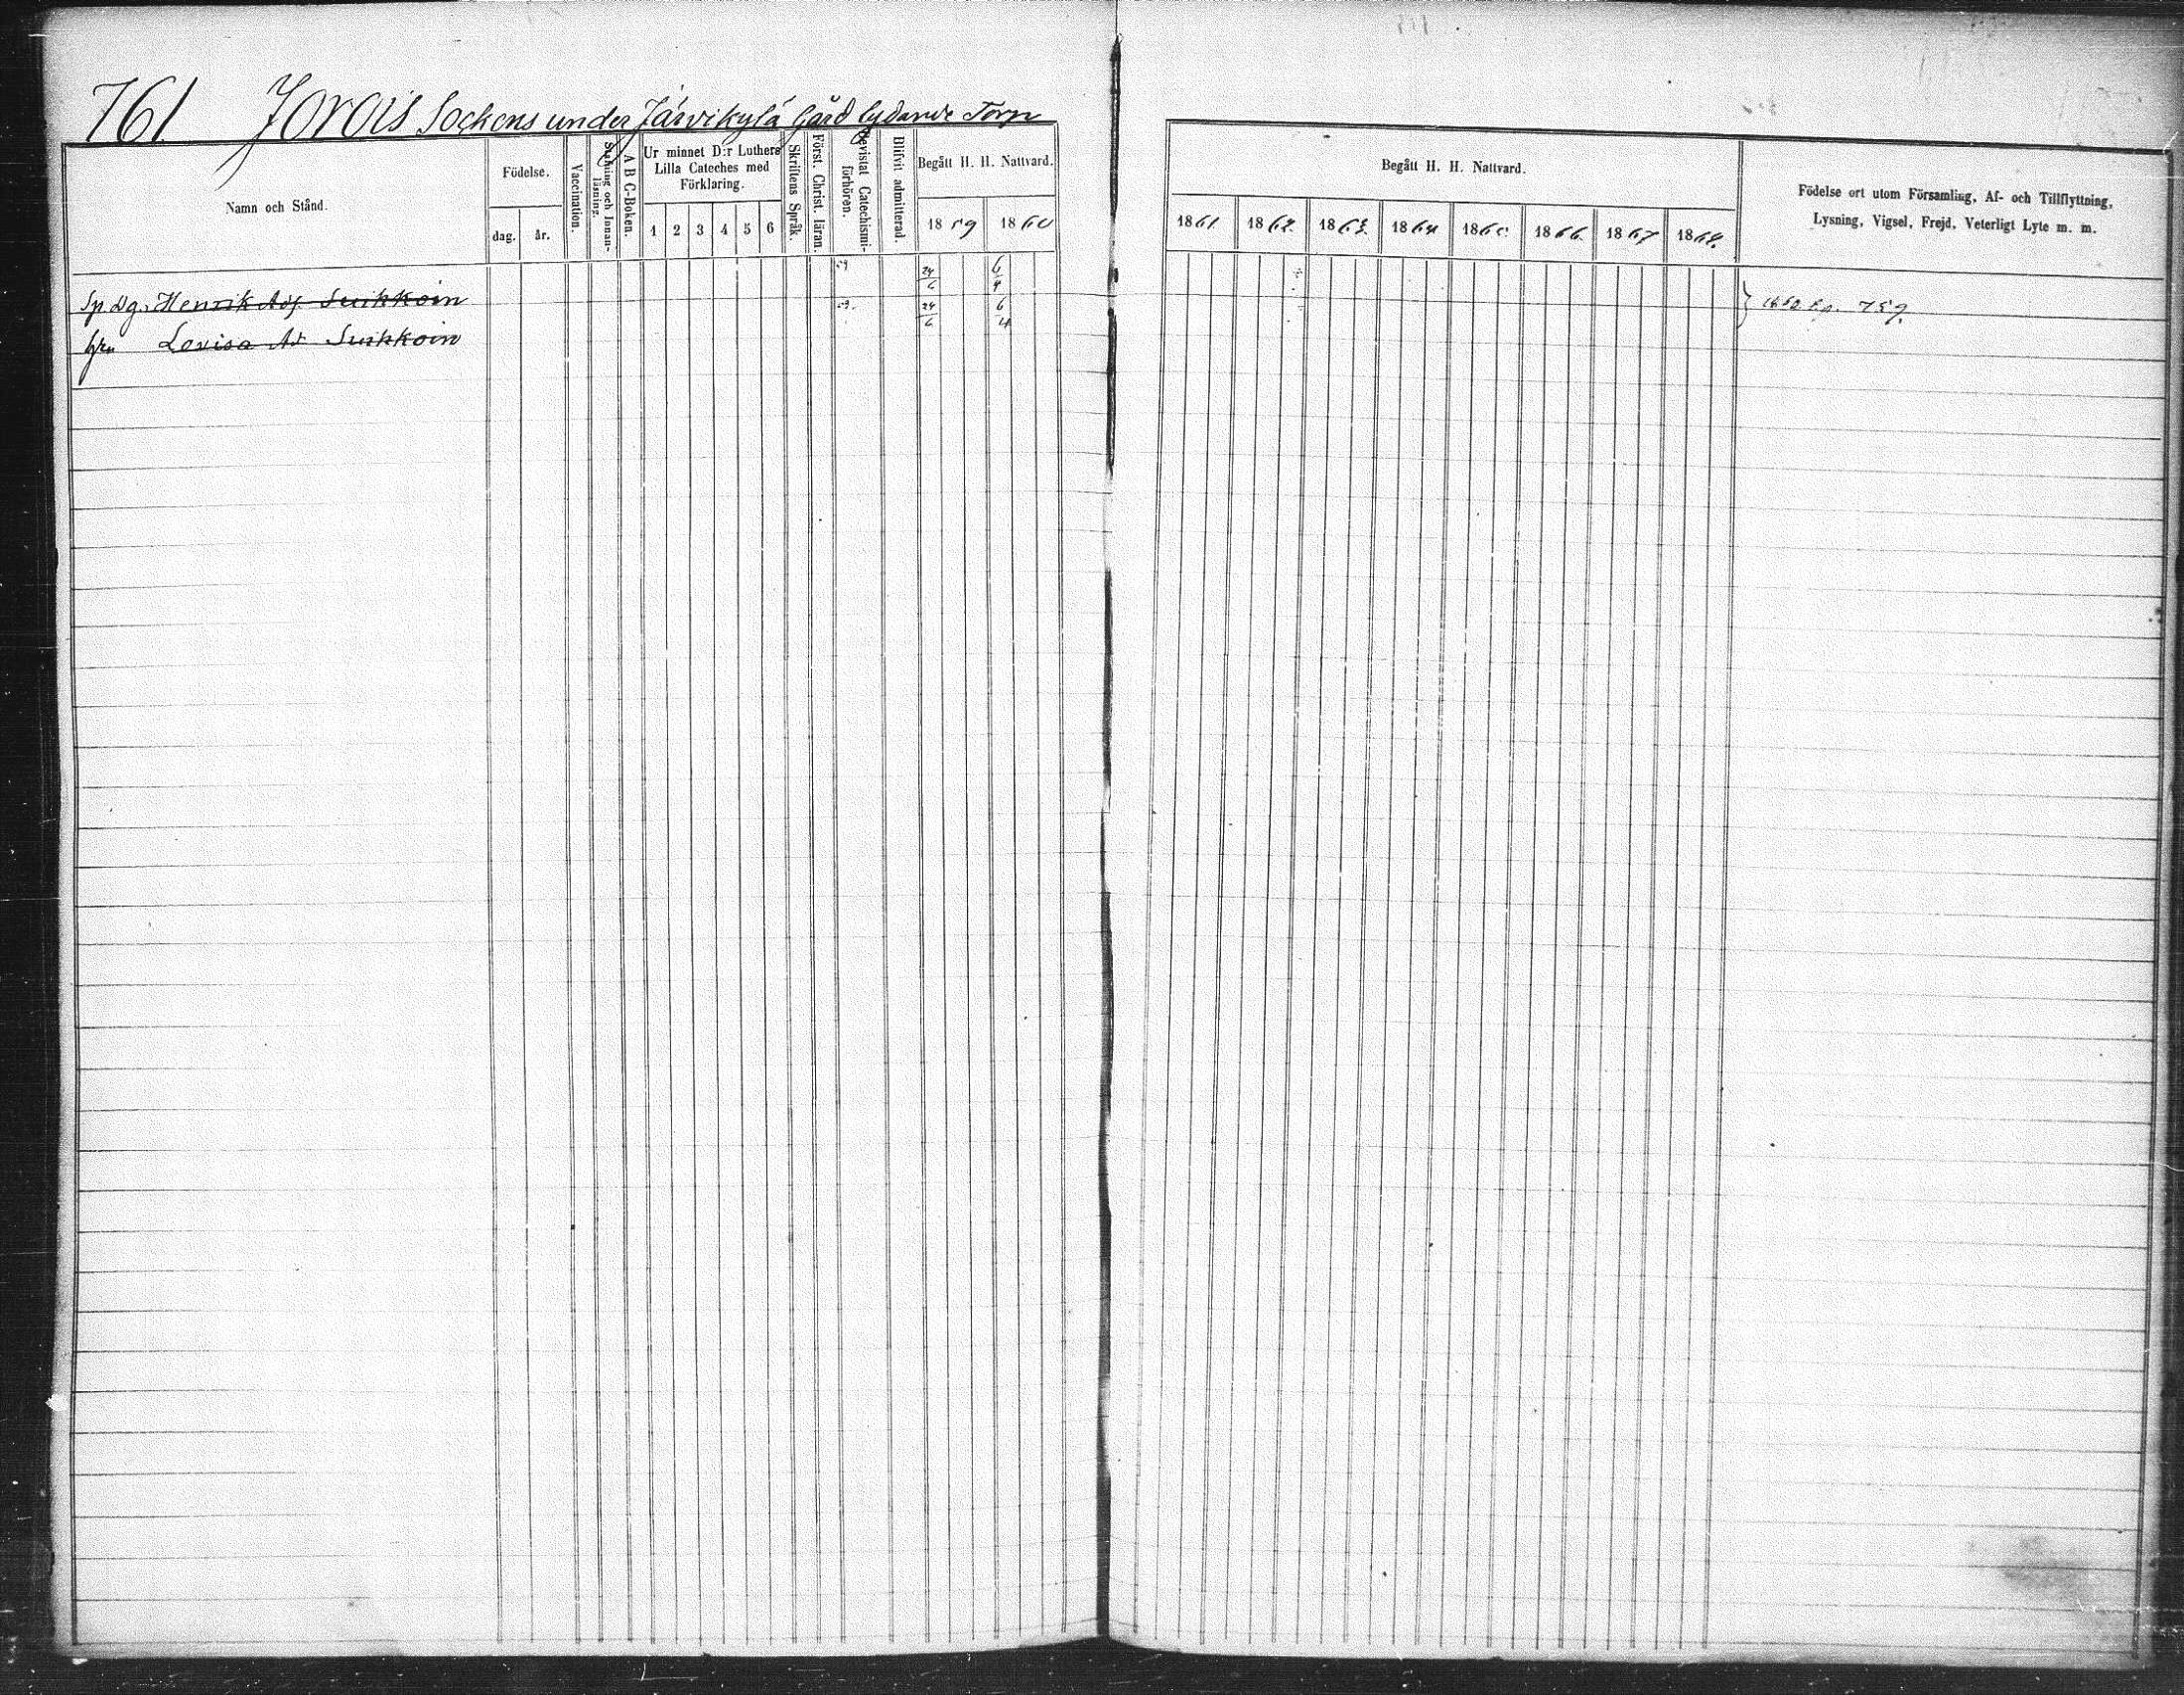 761 Jorois Sockens under Järvikylä Gård lydande Torp
Namn och Stånd.
Födelse.
dag. år.
Vaccination.
Stafning och Innan-
läsning.
A B C-Boken.
Ur minnet D:r Luthers
Lilla Cateches med
Förklaring.
1 2 3 4 5 6
Skriftens Språk.
Först. Christ. läran.
Bevistat Catechismi-
förhören.
Blifvit admitterad.
Begått H. H. Nattvard.
1859 1860
Begått H. H. Nattvard.
1861. 1862. 1863. 1864 1865 1866. 1867 1868.
Födelse ort utom Församling, Af- och Tillflyttning,
Lysning, Vigsel, Frejd, Veterligt Lyte m. m.
Henrik Adf. 59 24/6 6/4
Lovisa 59. 24/6 6/4
759.